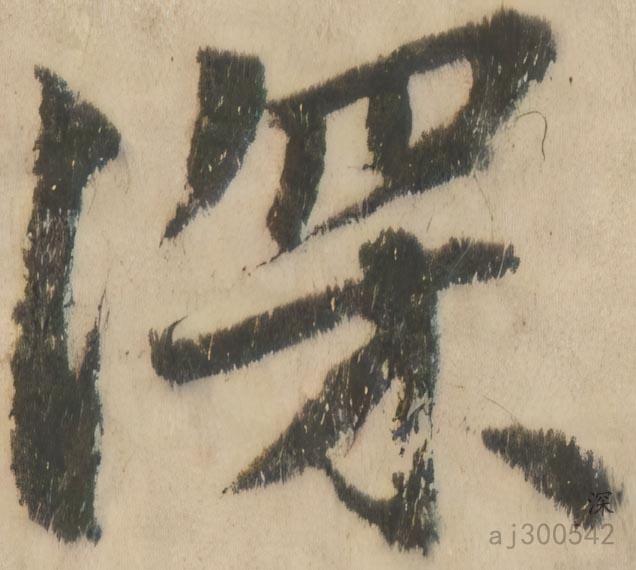 深
深
aj300542